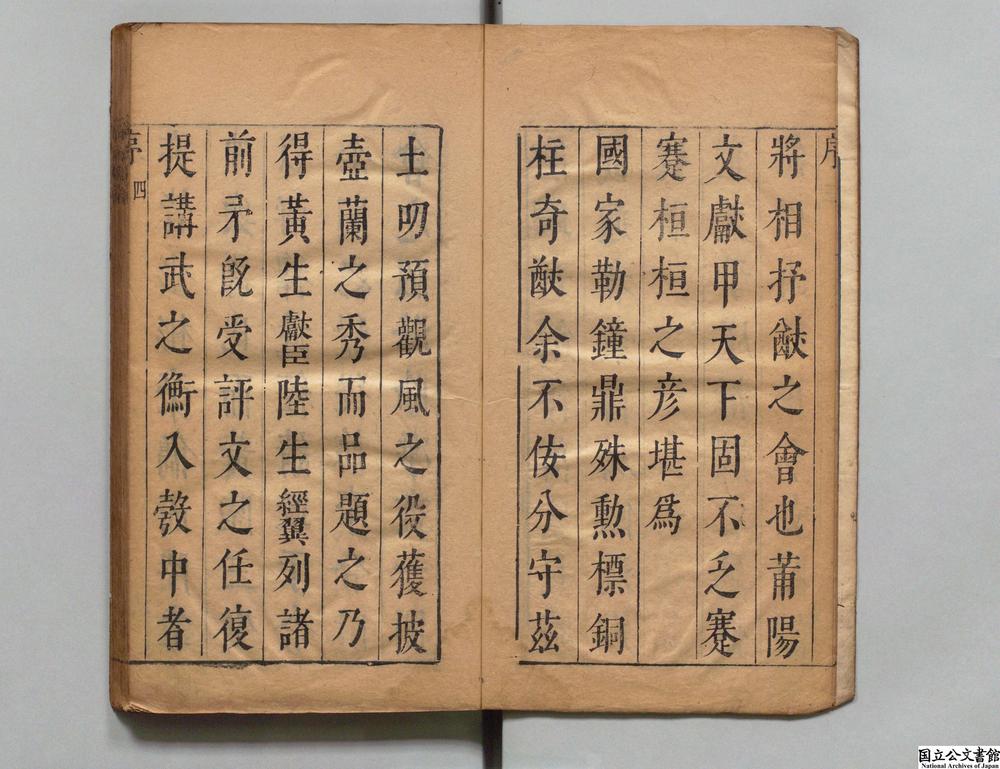 序
將相抒猷之會也莆陽
文獻甲天下固不乏蹇
蹇桓桓之彦堪爲
國家勒鐘鼎殊勲標銅
柱奇猷余不佞分守茲
土叨預觀風之役獲披
壺蘭之秀而品題之乃
得黃生獻臣陸生經翼列諸
前矛旣受評文之任復
提講武之衡入彀中者
序 四
国立公文書館
National Archives of Japan